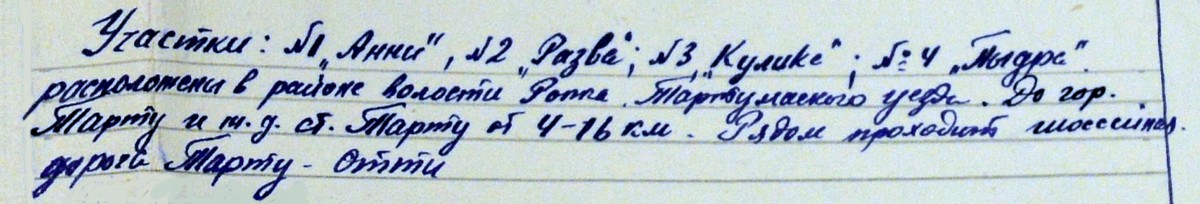 Участки: №1 „Анни“, №2 „Разва“; №3 „Кулике“; №4 „Тыдра“.
расположены в районе волости Ропка Тартумаского уезда. До гор.
Тарту и ж.д. ст. Тарту от 4-16 км. Рядом проходит шоссейная
дорога Тарту - Отти